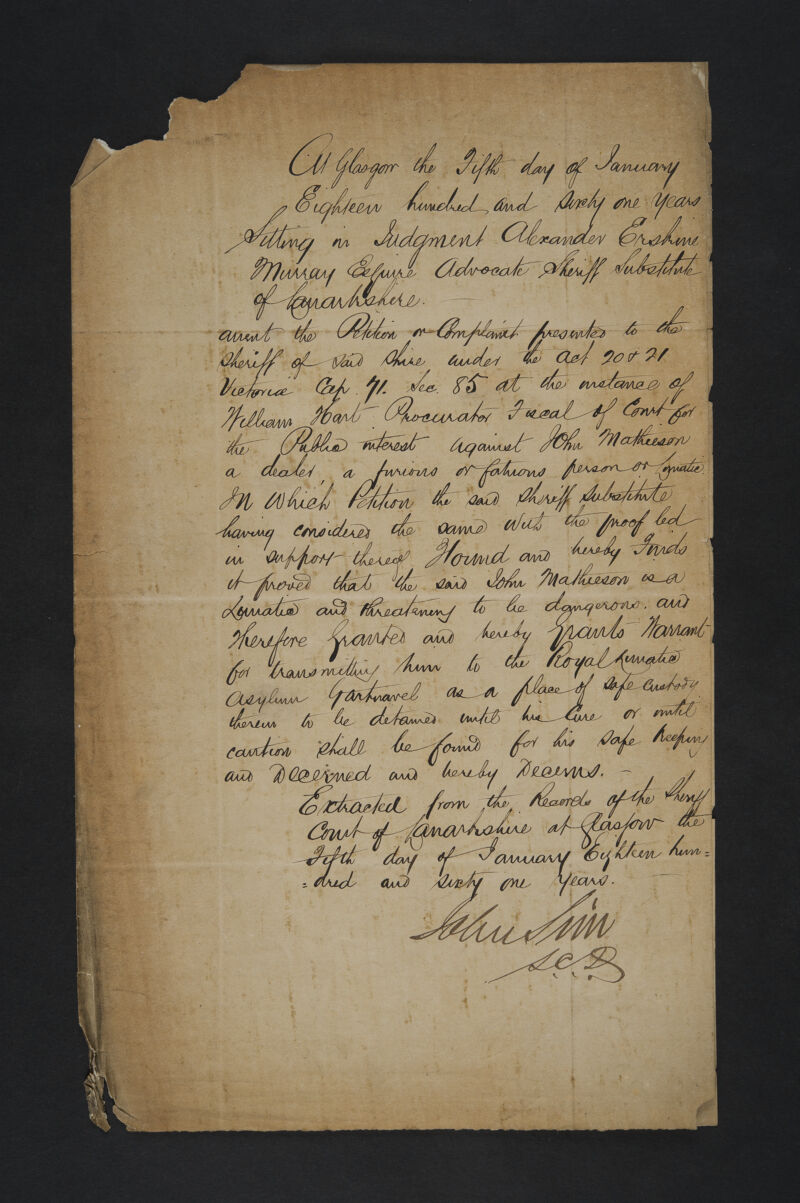 At Glasgow the Fifth day of January
Eighteen hundred and sixty one Years
Sitting in Judgment Alexander Erskine
Murray Esquire Advocate Sheriff Substitute
of Lanarkshire. —
anent the Petition or Complaint presented to the
Sheriff of said Shire under the Act 20 & 21
Victoria Cap 71. Sec. 85 at the instance of
William Hart Procurator Fiscal of Court for
the Public interest against John Mathieson
a dealer, a furious or fatuous person or Lunatic
In Which Petition the said Sheriff Substitute
having considered the same with the proof led
in support thereof Found and hereby Finds
it proved that the said John Mathieson is a
Lunatic and threatening to be dangerous. and
Therefore Granted and hereby Grants Warrant
for transmitting him to the Royal Lunatic
Asylum Gartnavel as a place of safe custody
therein to be detained until his Cure or until
caution shall be found for his safe keeping
and Decerned and hereby Decerns. —
Extracted from the Records of the Sheriff
Court of Lanarkshire at Glasgow the
Fifth day of January Eighteen hun=
=dred and sixty one Years.
John Sim
S.C.D.